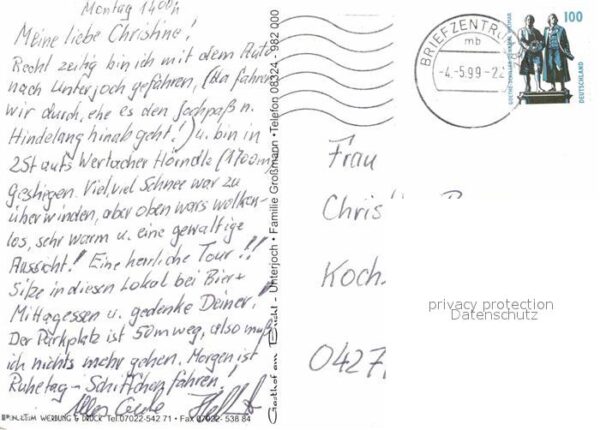 Montag 14 00 h
Meine liebe Christine!
Recht zeitig bin ich mit dem Auto
nach Unterjoch gefahren, (da fahren
wir durch, ehe es den Jochpaß n.
Hindelang hinab geht!) u. bin in
2 St aufs Wertacher Hörndle (1700m)
gestiegen. Viel, viel Schnee war zu
überwinden, aber oben wars wolken-
los, sehr warm u. eine gewaltige
Aussicht! Eine herrliche Tour!!
Sitze in diesen Lokal bei Bier +
Mittagessen u. gedenke Deiner!
Der Parkplatz ist 50m weg, also muß
ich nichts mehr gehen. Morgen ist
Ruhetag - Schiffchen fahren!
Alles Gute
WERBUNG & DRUCK Tel. 07022-542 71 • Fax 07022- 538 84
Gasthof am Buchl - Unterjoch • Familie Großmann • Telefon 08324 - 982 000
BRIEFZENTRUM
mb
-4.-5.99-22
100
GOETHE-SCHILLER-DENKMAL WEIMAR
DEUTSCHLAND
Frau
Koch.
privacy protection
Datenschutz
0427